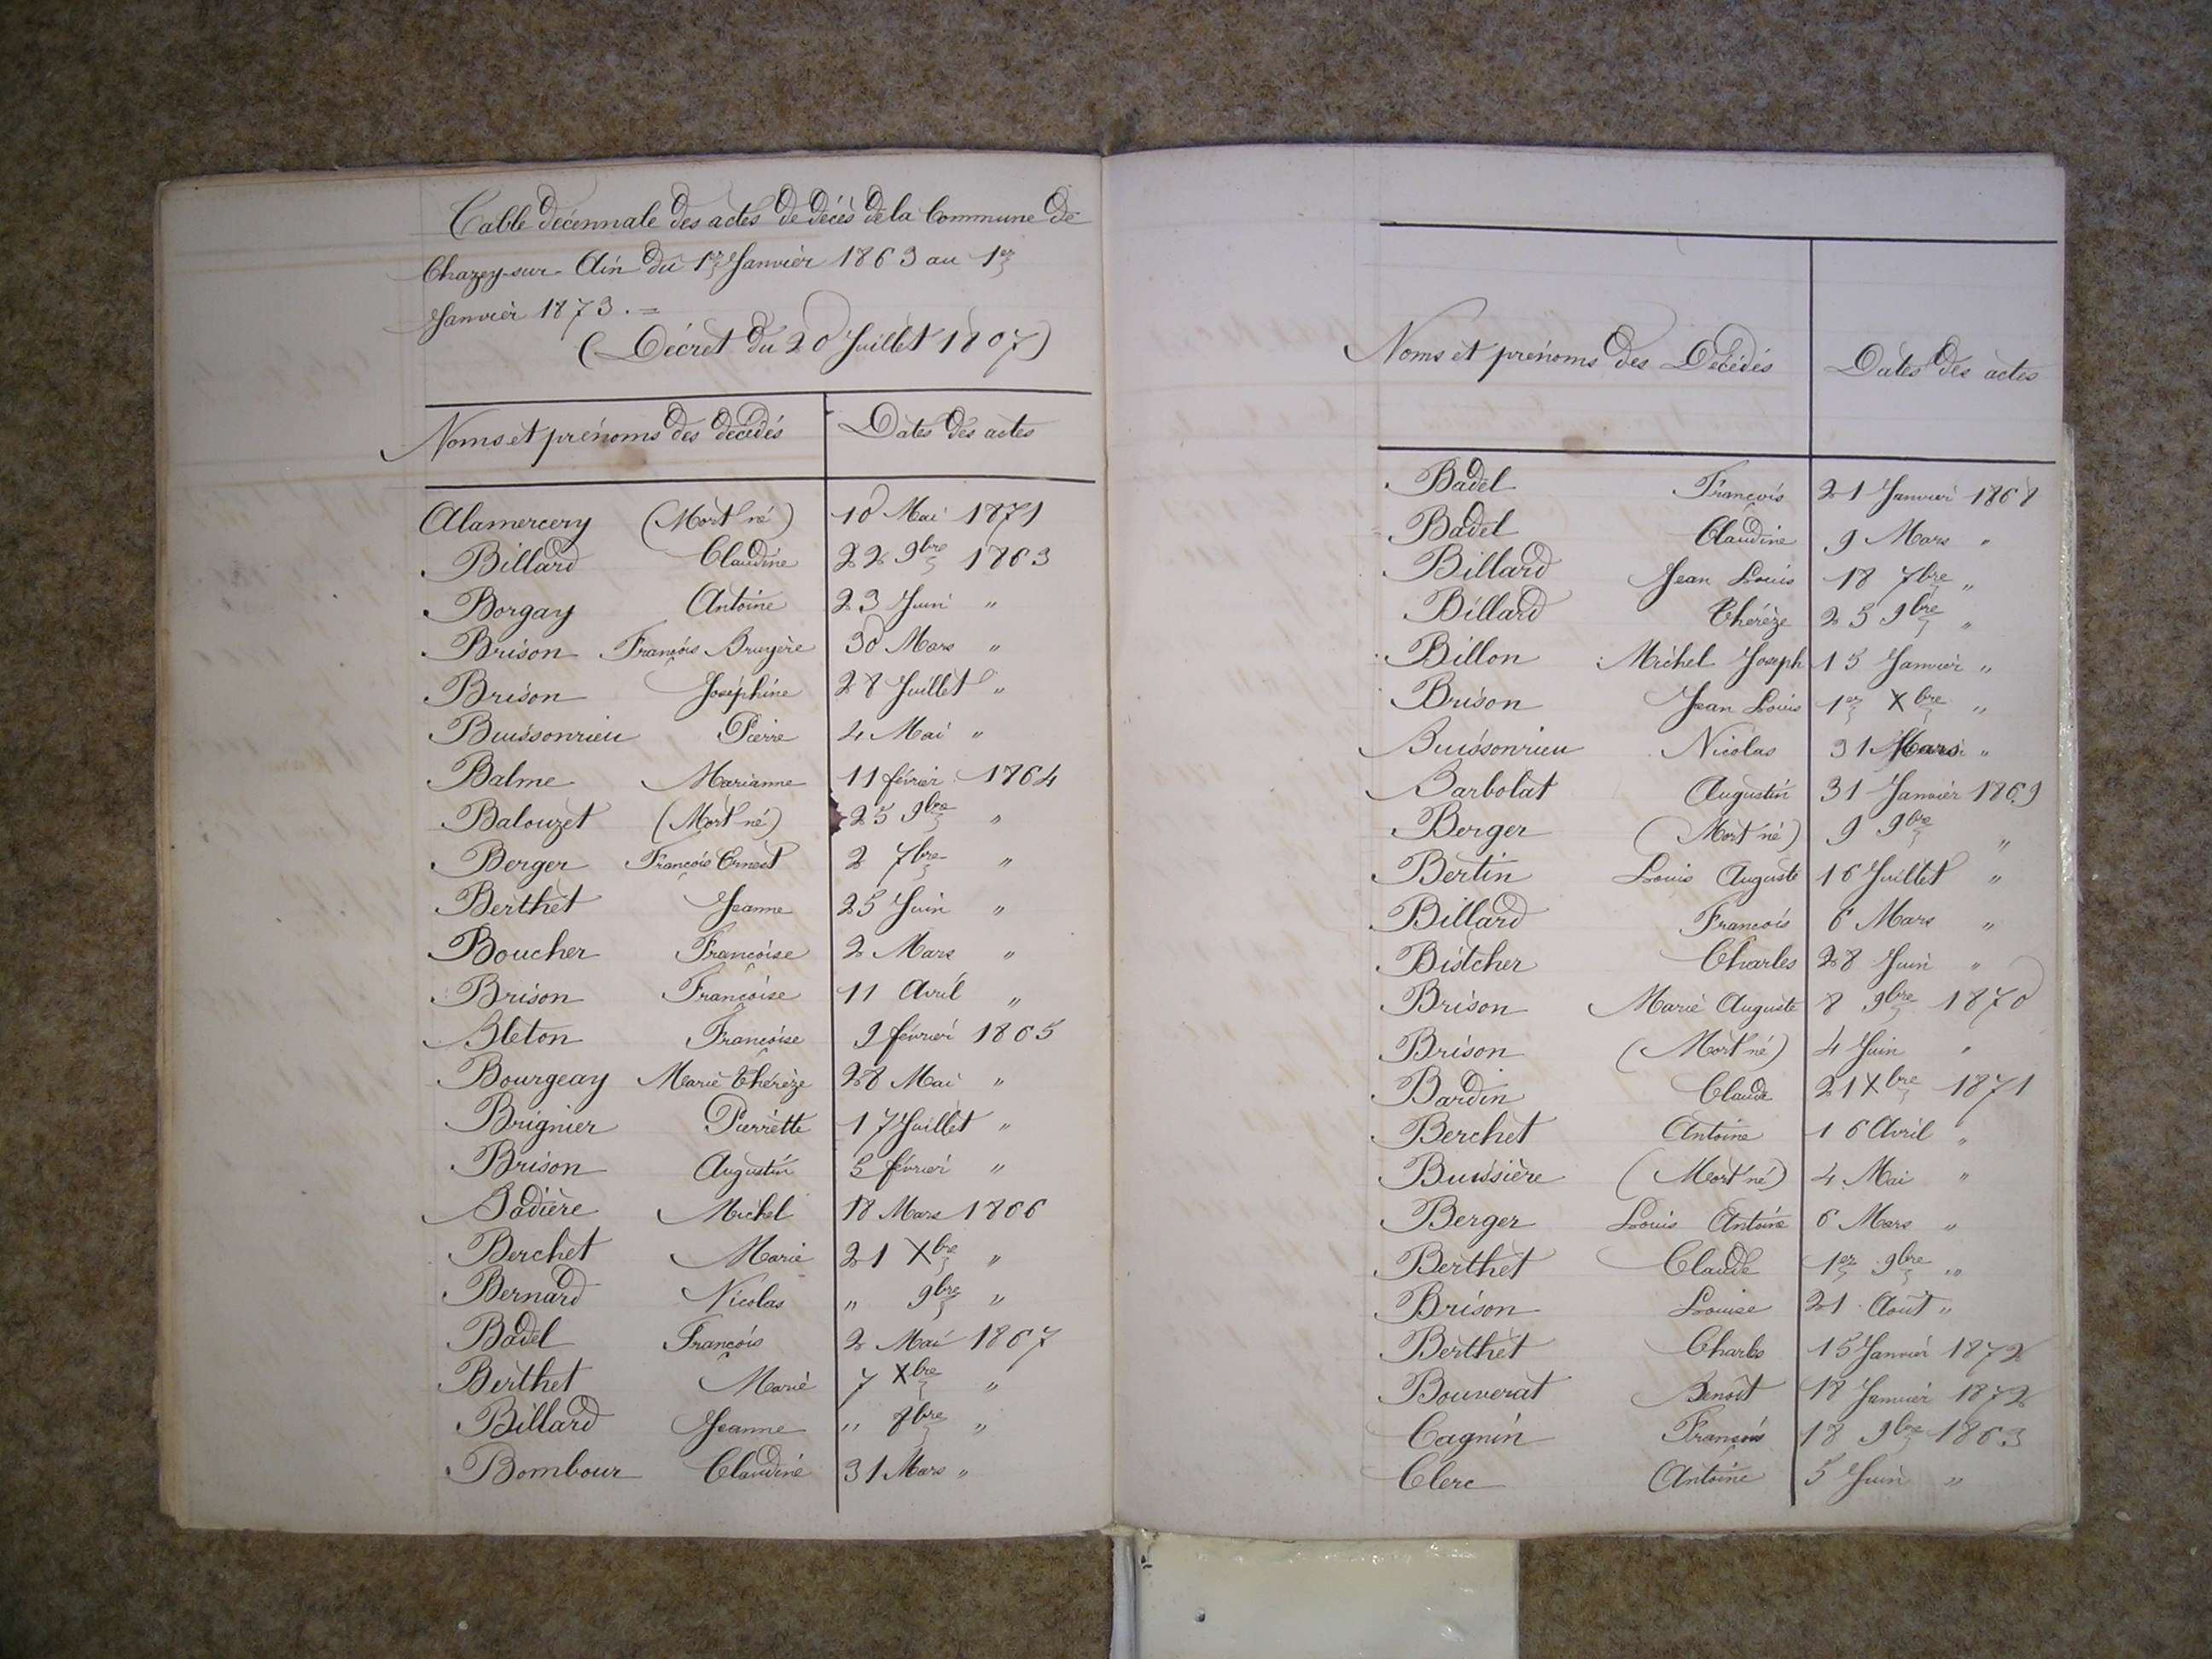 Table décennale des actes de décès de la Commune de
Chazey-sur-Ain du 1er Janvier 1863 au 1er
Janvier 1873. =
(Décret du 20 Juillet 1807)
Noms et prénoms des décédés Dates des actes
Alamercery (Mort né) 10 Mai 1871
Billard Claudine 22 9bre 1863
Borgay Antoine 23 Juin "
Brison François Bruyère 30 Mars "
Brison Joséphine 28 Juillet "
Buissonrieu Pierre 4 Mai "
Balme Marianne 11 février 1864
Balouzet (Mort né) 25 9bre "
Berger François Ernest 2 7bre "
Berthet Jeanne 25 Juin "
Boucher Françoise 2 Mars "
Brison Françoise 11 Avril "
Bleton Françoise 9 février 1865
Bourgeay Marie Thérèze 28 Mai "
Brignier Pierrette 17 Juillet "
Brison Augustin 5 février "
Badière Michel 18 Mars 1866
Berchet Marie 21 Xbre "
Bernard Nicolas " 9bre "
Badel François 2 Mai 1867
Berthet Marie 7 Xbre "
Billard Jeanne " 8bre "
Bombour Claudine 31 Mars "
Noms et prénoms des Décédés Dates des actes
Badel François 21 Janvier 1868
Badel Claudine 9 Mars "
Billard Jean Louis 18 7bre "
Billard Thérèze 25 9bre "
Billon Michel Joseph 15 Janvier "
Brison Jean Louis 1er Xbre "
Buissonrieu Nicolas 31 Mars "
Barbolat Augustin 31 Janvier 1869
Berger (Mort né) 9 9bre "
Bertin Louis Auguste 16 Juillet "
Billard François 6 Mars "
Bistcher Charles 28 Juin "
Brison Marie Auguste 8 9bre 1870
Brison (Mort né) 4 Juin "
Bardin Claude 21 Xbre 1871
Berchet Antoine 16 Avril "
Buissière (Mort né) 4 Mai "
Berger Louis Antoine 6 Mars "
Berthet Claude 1er 9bre "
Brison Louise 21 Août "
Berthet Charles 15 Janvier 1872
Bouverat Benoît 18 Janvier 1872
Cagnin François 18 9bre 1863
Clerc Antoine 5 Juin "